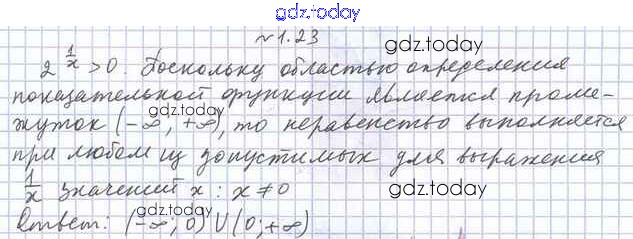 gdz.today
№ 1.23
gdz.today
2^{1/x} > 0. Поскольку областью определения
показательной функции является проме-
gdz.today
жуток (-∞; +∞), то неравенство выполняется
при любом из допустимых для выражения
1/x значений x : x ≠ 0
gdz.today
gdz.today
Ответ: (-∞; 0) ∪ (0; +∞)